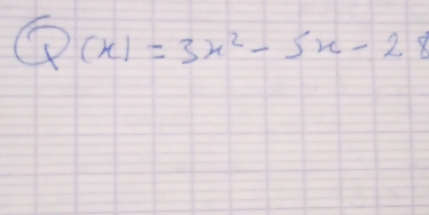 Q(x) = 3x² - 5x - 28